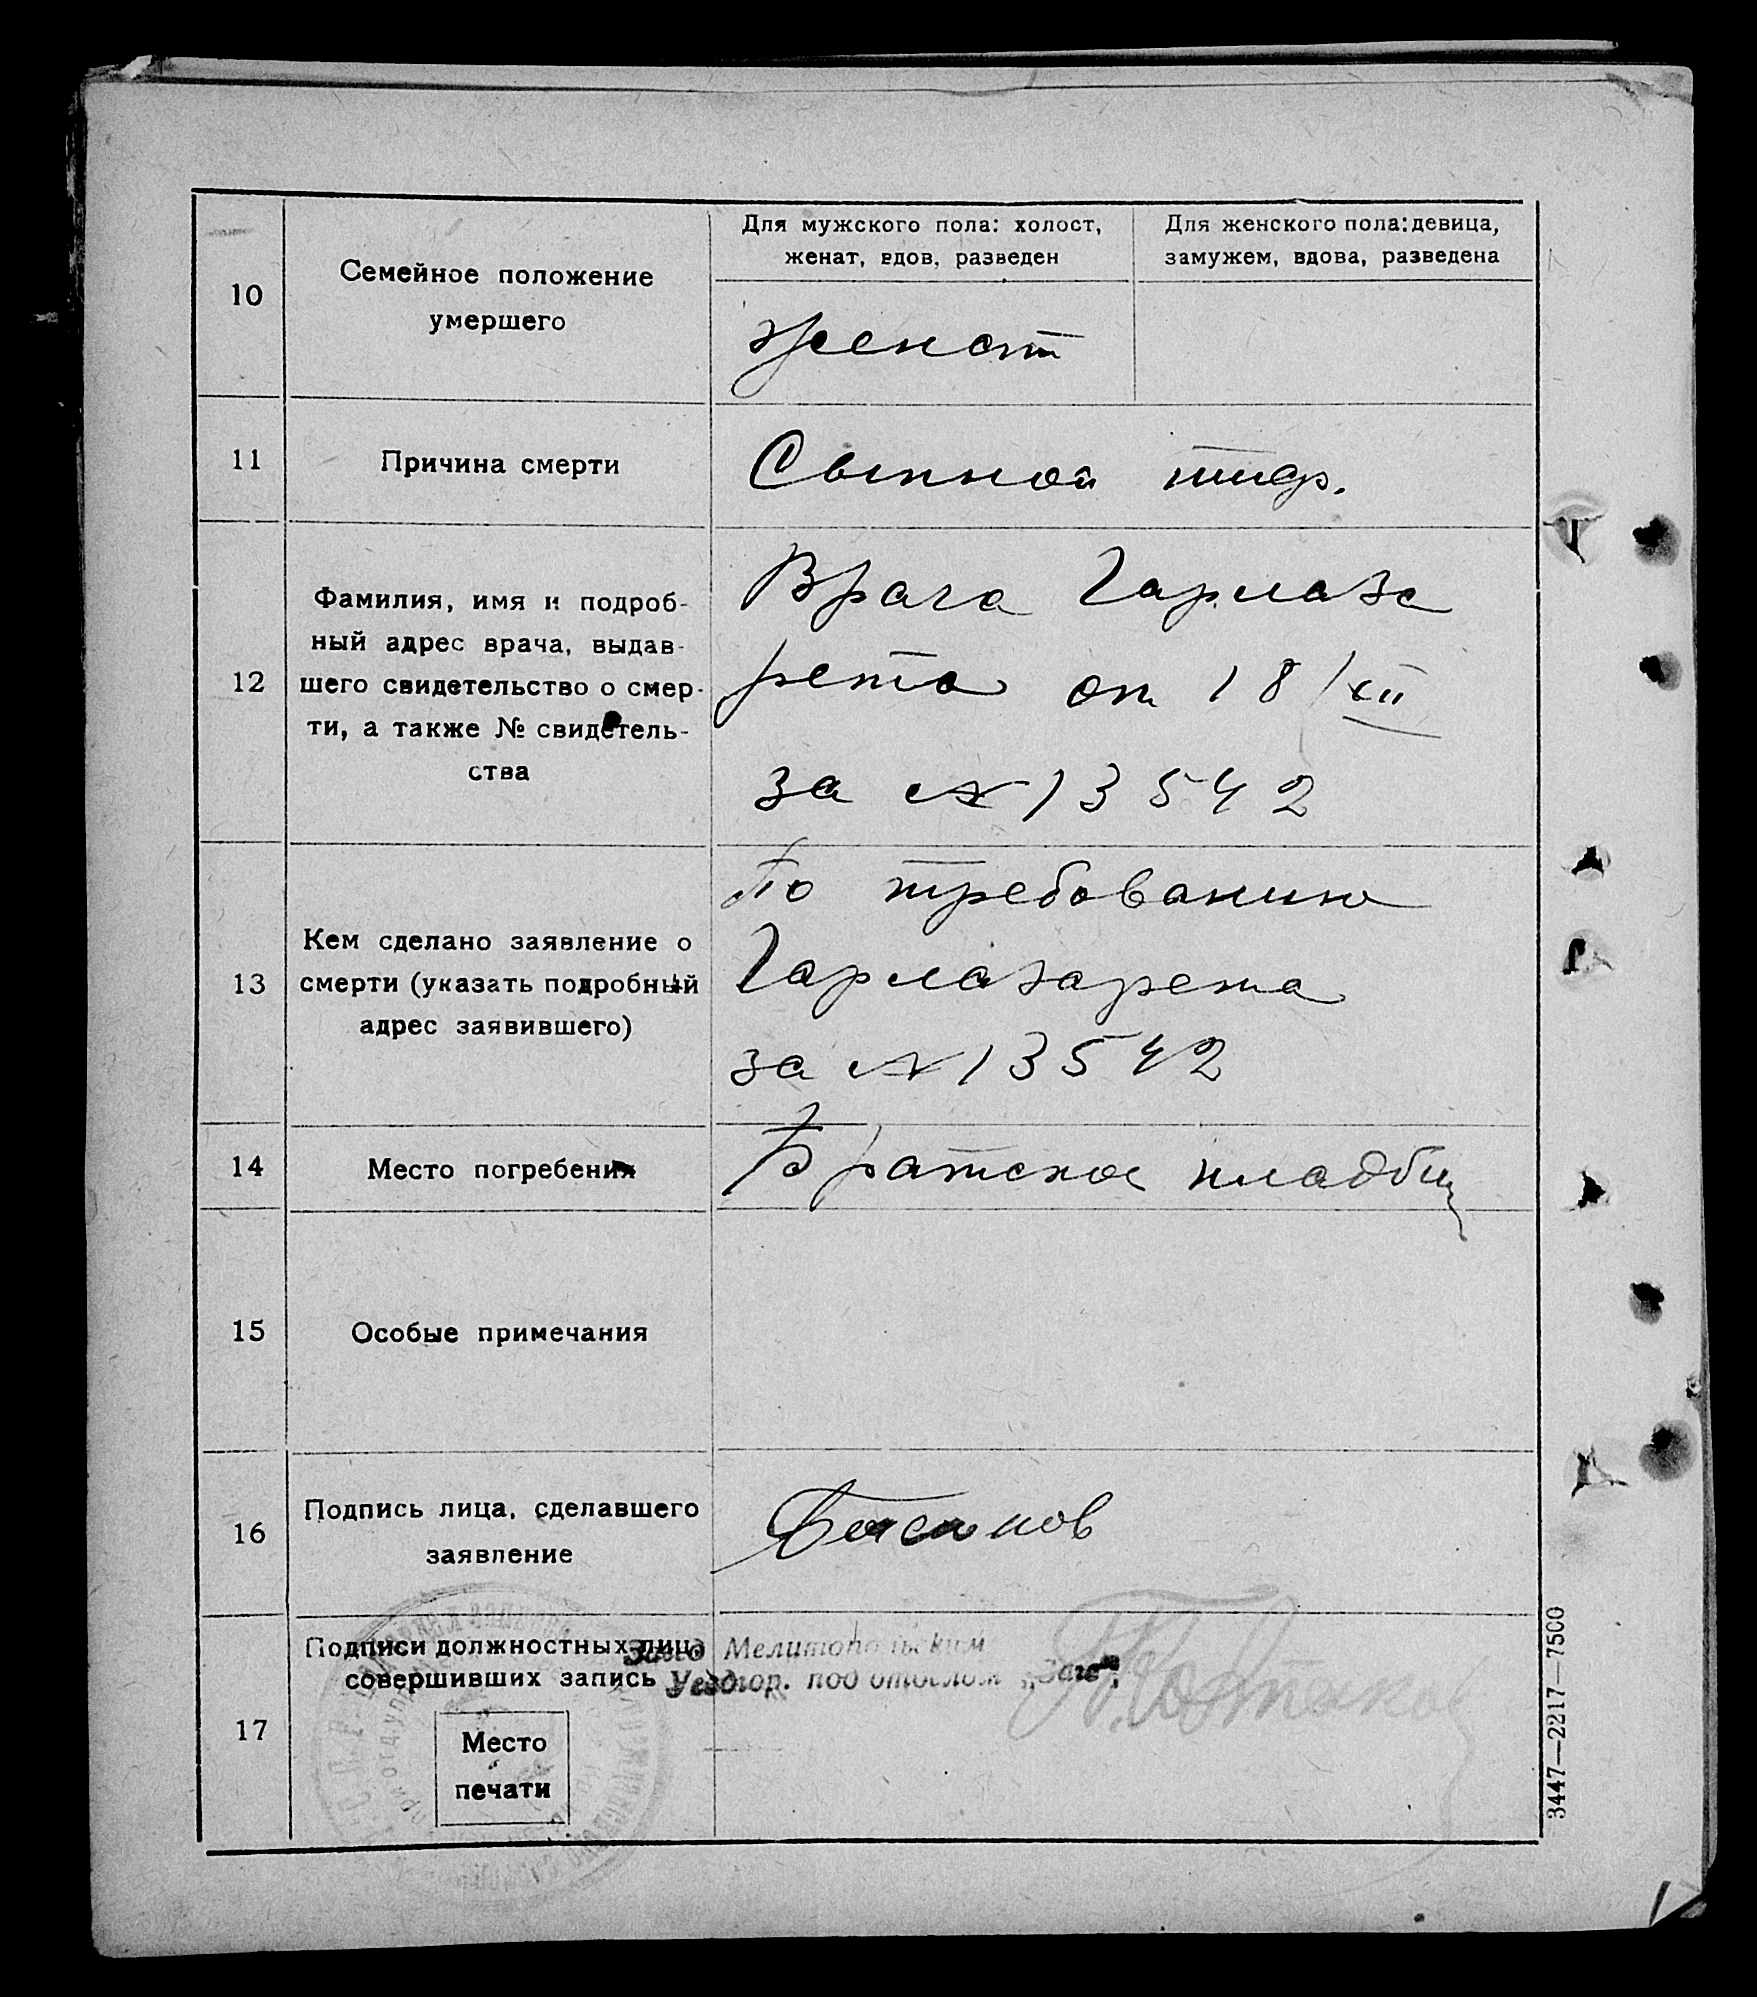 10
Семейное положение
умершего
Для мужского пола: холост,
женат, вдов, разведен
Для женского пола: девица,
замужем, вдова, разведена
женат
11
Причина смерти
Сыпной тиф.
12
Фамилия, имя и подроб-
ный адрес врача, выдав-
шего свидетельство о смер-
ти, а также № свидетель-
ства
Врача Гарлаза
рета от 18/XII
за № 13542
13
Кем сделано заявление о
смерти (указать подробный
адрес заявившего)
По требованию
Гарлазарета
за № 13542
14
Место погребения
Братское кладбищ
15
Особые примечания
16
Подпись лица, сделавшего
заявление
17
Подписи должностных лиц,
совершивших запись
Завед Мелитопольским
Уездгор. под отделом „Загс“,
Место
печати
3447—2217—7500